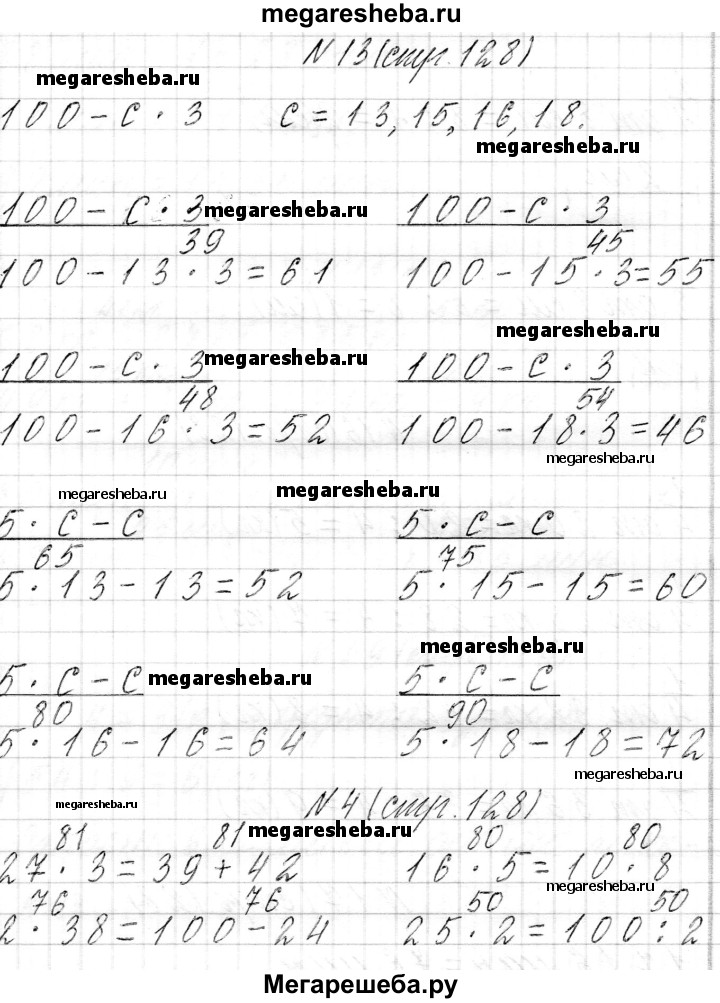 megaresheba.ru
N 13 (стр. 128)
megaresheba.ru
100 - c · 3    c = 13, 15, 16, 18.
megaresheba.ru
100 - c · 3    megaresheba.ru    100 - c · 3
39    45
100 - 13 · 3 = 61    100 - 15 · 3 = 55
megaresheba.ru
100 - c · 3    megaresheba.ru    100 - c · 3
48    54
100 - 16 · 3 = 52    100 - 18 · 3 = 46
megaresheba.ru
megaresheba.ru    megaresheba.ru
5 · c - c    5 · c - c
65    75
5 · 13 - 13 = 52    5 · 15 - 15 = 60
megaresheba.ru
5 · c - c    megaresheba.ru    5 · c - c
80    90
5 · 16 - 16 = 64    5 · 18 - 18 = 72
megaresheba.ru
megaresheba.ru    N 4 (стр. 128)
81    81    megaresheba.ru    80    80
27 · 3 = 39 + 42    16 · 5 = 10 · 8
megaresheba.ru
76    76    50    50
2 · 38 = 100 - 24    25 · 2 = 100 : 2
Мегарешеба.ру